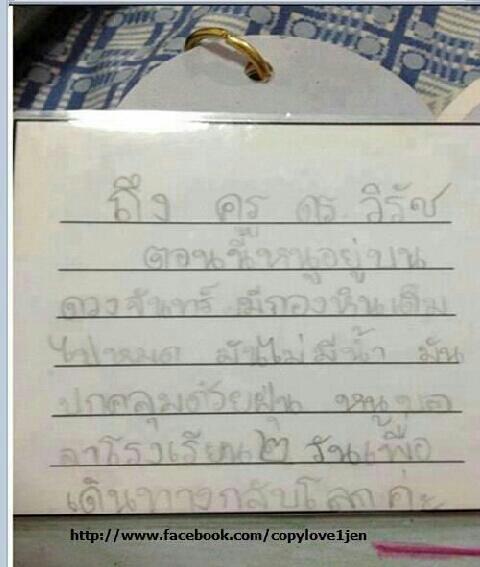 ถึง ครู ดร. วิรัช
ตอนนี้หนูอยู่บน
ดวงจันทร์ มีกองหินเต็ม
ไปหมด มันไม่มีน้ำ มัน
ปกคลุมด้วยฝุ่น หนูขอ
ลาโรงเรียน ๒ วันเพื่อ
เดินทางกลับโลกค่ะ
http://www.facebook.com/copylove1jen